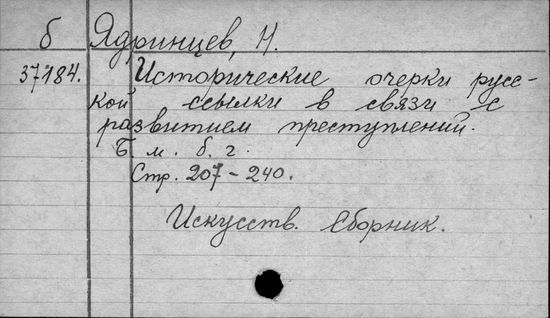 б Ядринцев, Н.
37184. Исторические очерки русс-
кой ссылки в связи с
развитием преступлений.
Б. м. б. г.
Стр. 207-240.
Искусств. Сборник.